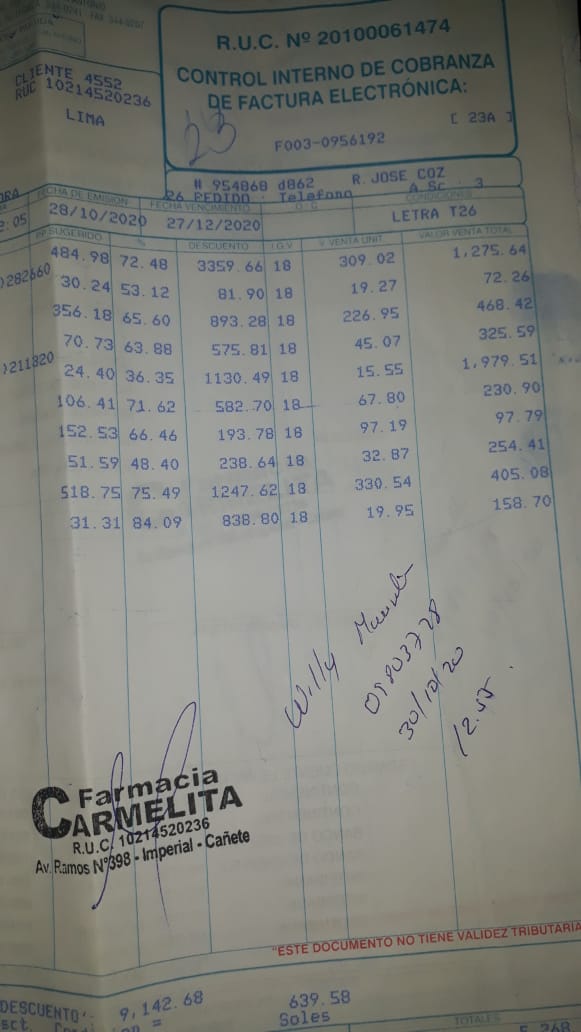 344-0241 - FAX 344-0207
R.U.C. Nº 20100061474
CONTROL INTERNO DE COBRANZA
DE FACTURA ELECTRÓNICA:
[ 23A ]
23
F003-0956192
CLIENTE 4552
RUC 10214520236
LIMA
# 954868 d862 R. JOSE COZ
26 PEDIDO : Telefono A Sc . 3
FECHA DE EMISION FECHA VENCIMIENTO O / C CONDICIONES
28/10/2020 27/12/2020 LETRA T26
SUGERIDO % DESCUENTO I.G.V V. VENTA UNIT. VALOR VENTA TOTAL
484.98 72.48 3359.66 18 309.02 1,275.64
)282660 30.24 53.12 81.90 18 19.27 72.26
356.18 65.60 893.28 18 226.95 468.42
70.73 63.88 575.81 18 45.07 325.59
)211820 24.40 36.35 1130.49 18 15.55 1,979.51
106.41 71.62 582.70 18 67.80 230.90
152.53 66.46 193.78 18 97.19 97.79
51.59 48.40 238.64 18 32.87 254.41
518.75 75.49 1247.62 18 330.54 405.08
31.31 84.09 838.80 18 19.95 158.70
Willy
30/10/20
12.55
Farmacia
CARMELITA
R.U.C. 10214520236
Av. Ramos Nº398 - Imperial - Cañete
"ESTE DOCUMENTO NO TIENE VALIDEZ TRIBUTARIA
DESCUENTO'- 9,142.68 639.58
= Soles
TOTALES